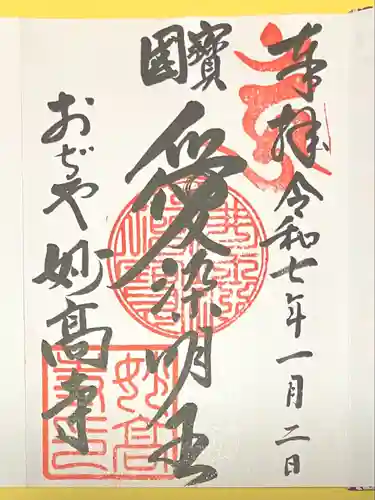 奉拝 令和七年一月二日
寶國
愛染明王
おぢや 妙高寺
妙高寺印